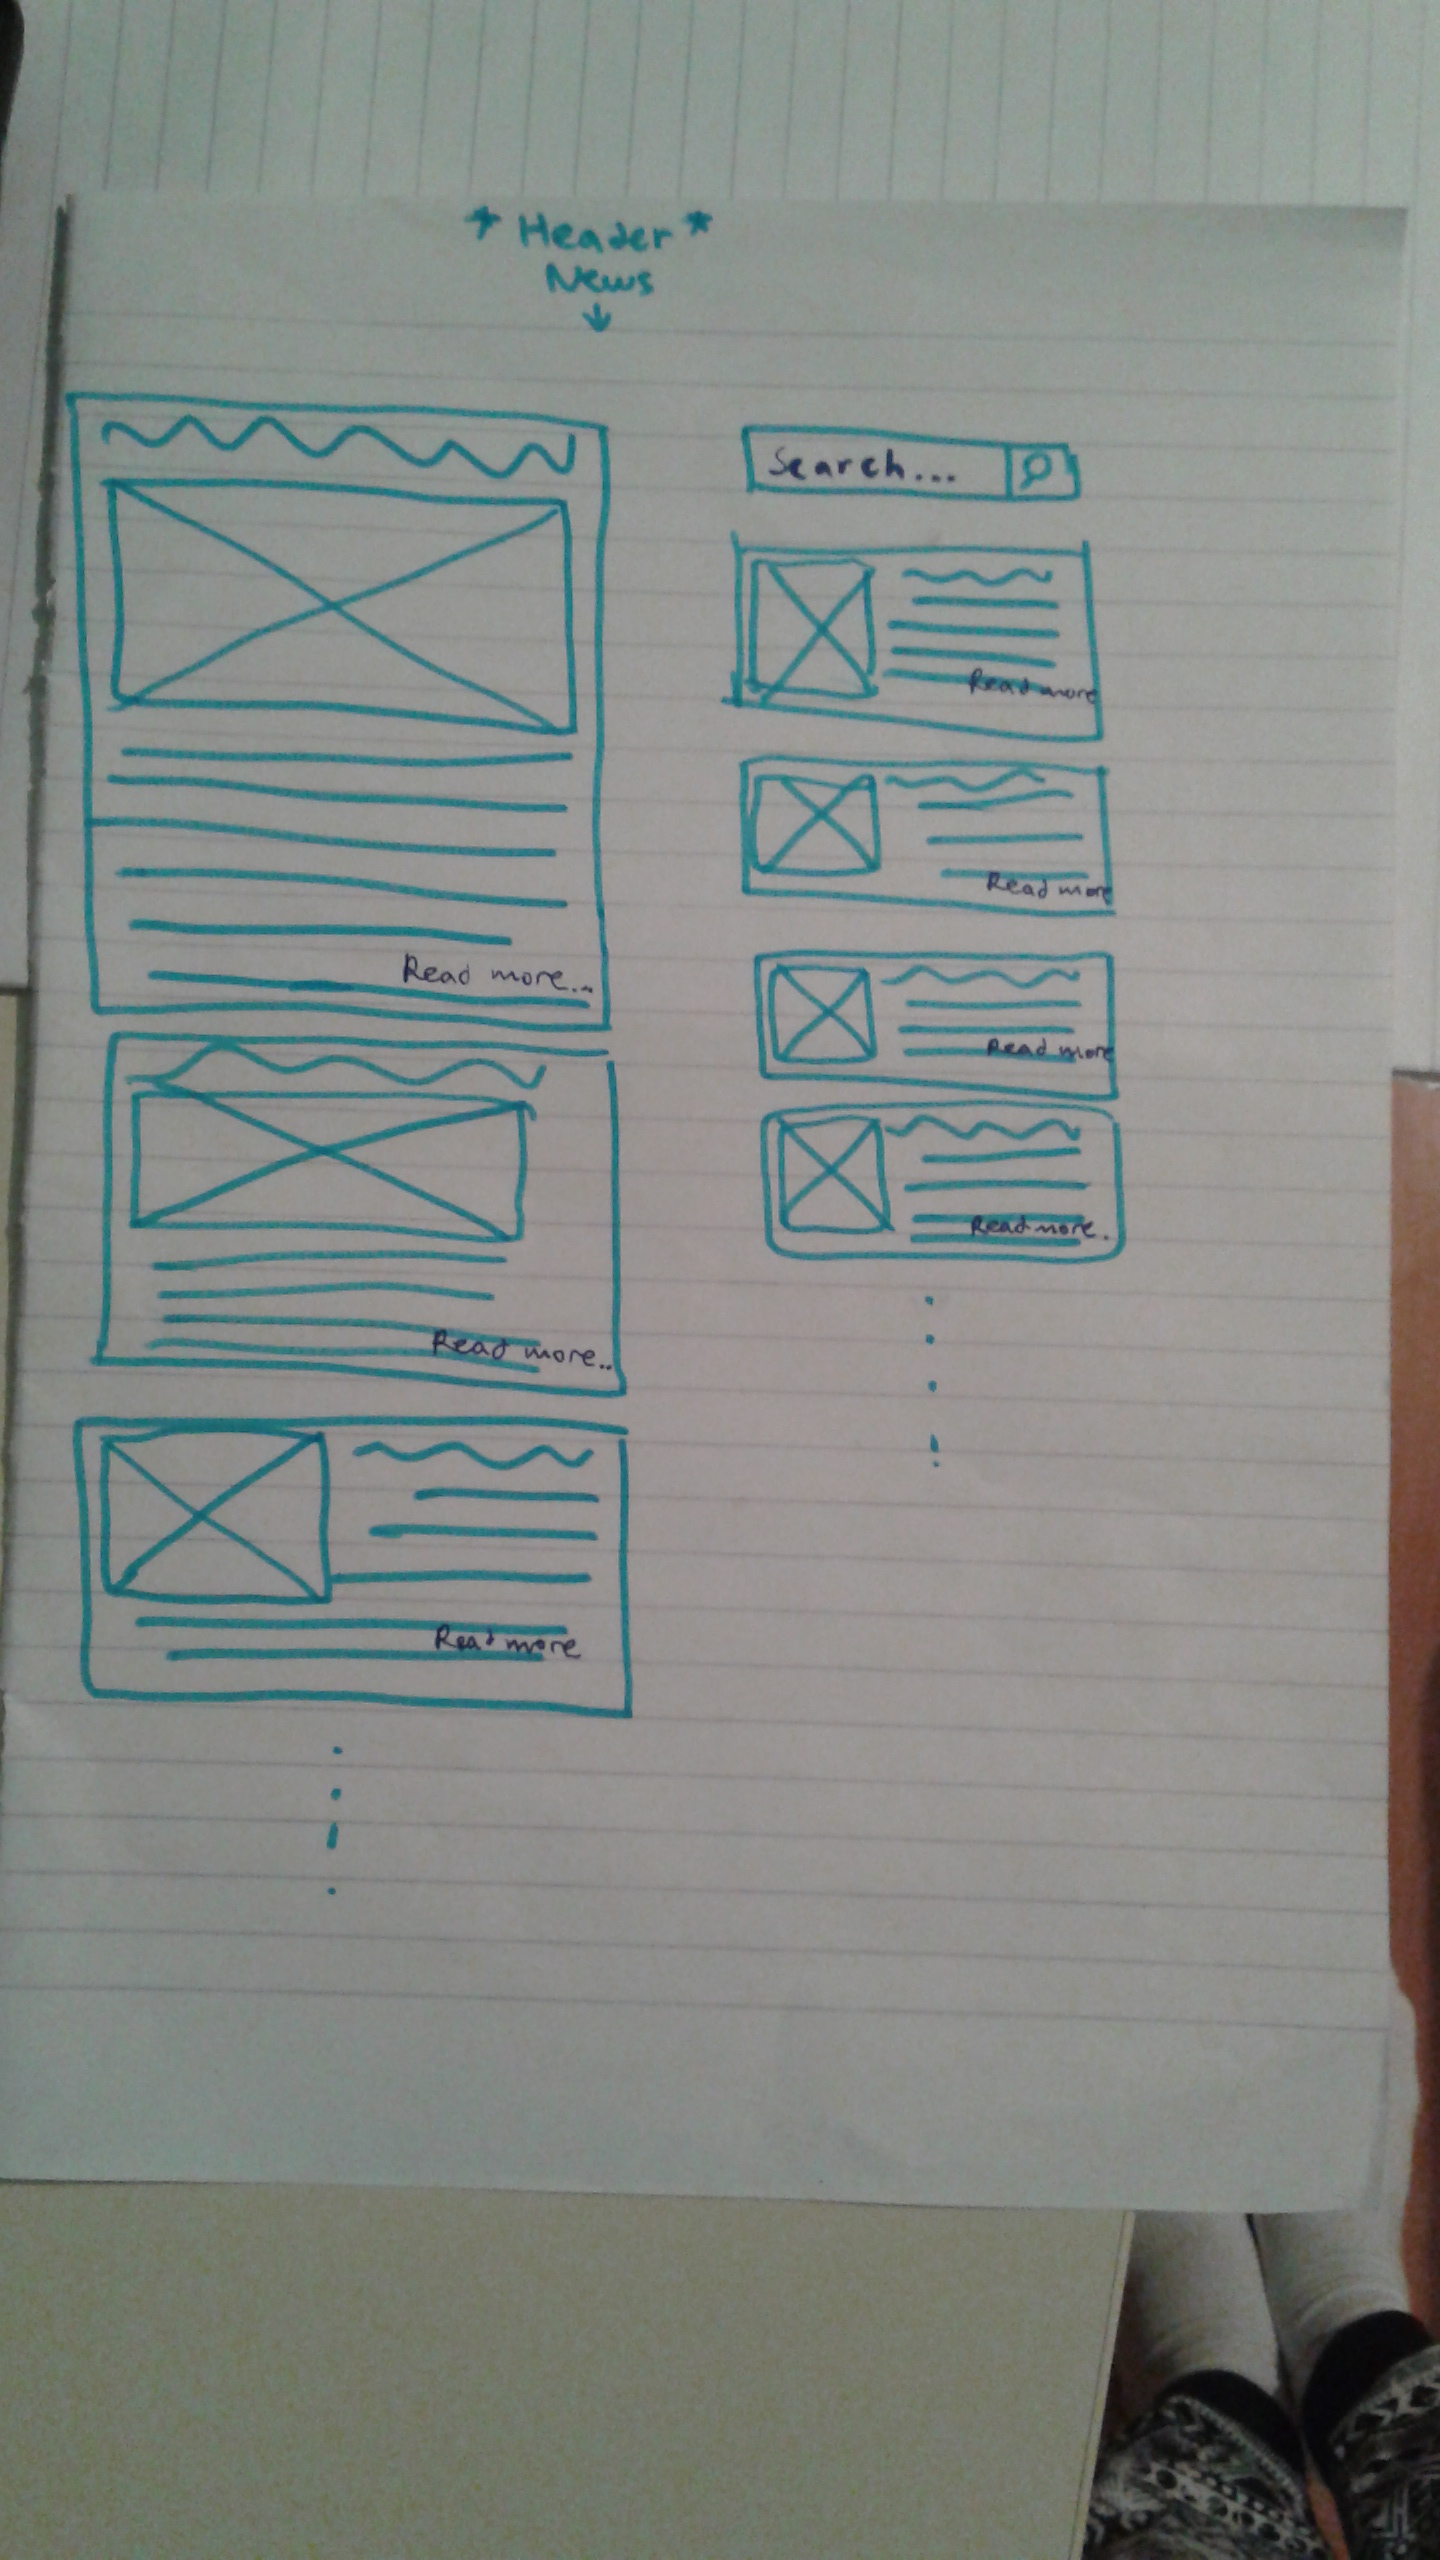 * Header *
News
Search...
Read more
Read more
Read more
Read more.
Read more...
Read more..
Read more